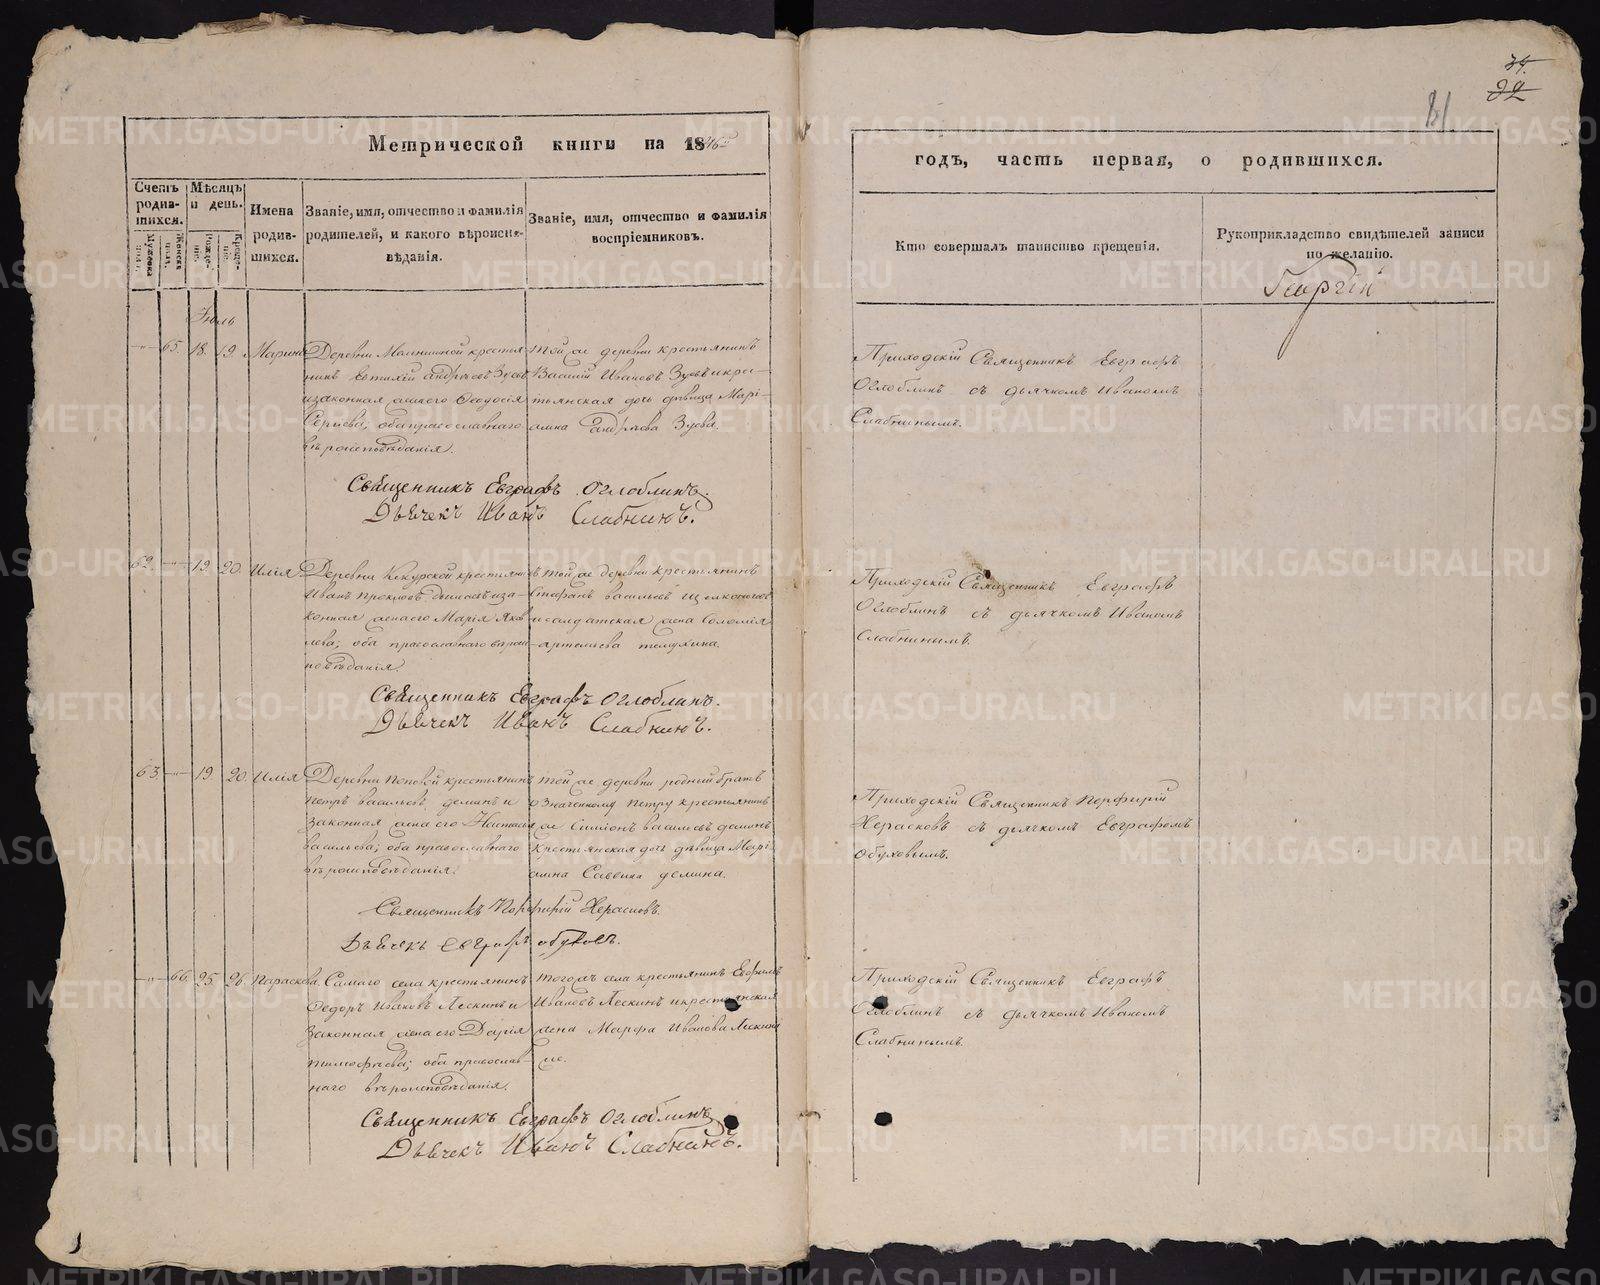 34.
32
81
Метрической книги на 1846й
годъ, часть первая, о родившихся.
Счетъ родив-шихся.
Мѣсяцъ и день.
Имена родив-шихся.
Званіе, имя, отчество и фамилія родителей, и какого вѣроиспо-вѣданія.
Званіе, имя, отчество и фамилія воспріемниковъ.
Кто совершалъ таинство крещенія.
Рукоприкладство свидѣтелей записи по желанію.
Георгій
Іюль
65. 18. 19. Марина
Деревни крестья-
нинъ Евтихій Андреевъ Зуевъ
и законная жена его Феодосія
Сергѣева, оба православнаго
вѣроисповѣданія.
той же деревни крестьянинъ
Василій Ивановъ Зуевъ и кре-
стьянская дочь дѣвица Марі-
амна Андреева Зуева.
Приходскій Священникъ Евграфъ
Оглоблинъ съ дьячкомъ Иваномъ
Слабнинымъ.
Священникъ Евграфъ Оглоблинъ.
Дьячекъ Иванъ Слабнинъ.
62. 19. 20. Илія
Деревни Кекурской крестьянинъ
Иванъ Прокловъ и за-
конная жена его Марія Яков
лева; оба православнаго вѣрои-
повѣданія.
той же деревни крестьянинъ
Стефанъ Васильевъ
и солдатская жена Соломія
Артемьева
Приходскій Священникъ Евграфъ
Оглоблинъ съ дьячкомъ Иваномъ
Слабнинымъ.
Священникъ Евграфъ Оглоблинъ.
Дьячекъ Иванъ Слабнинъ.
63 19 20. Илія
Деревни Поповой крестьянинъ
Петръ Васильевъ Деминъ и
законная жена его Настасья
Васильева; оба православнаго
вѣроисповѣданія.
той же деревни родный братъ
означенному Петру крестьянинъ
же Симіонъ Васильевъ Деминъ
крестьянская дочь дѣвица Марі-
амна Саввина Демина.
Приходскій Священникъ Порфирій
Херасковъ съ дьячкомъ Евграфомъ
Обуховымъ.
Священникъ Порфирій Херасковъ.
Дьячекъ Евграфъ Обуховъ.
66. 25. 26. Параскева.
Самаго села крестьянинъ
Федоръ Ивановъ Лескинъ и
законная жена его Дарія
Тимофѣева; оба православ-
наго вѣроисповѣданія.
того же села крестьянинъ
Ивановъ Лескинъ и крестьянская
жена Марфа Иванова Лескина
же.
Приходскій Священникъ Евграфъ
Оглоблинъ съ дьячкомъ Иваномъ
Слабнинымъ.
Священникъ Евграфъ Оглоблинъ
Дьячекъ Иванъ Слабнинъ.
METRIKI.GASO-URAL.RU